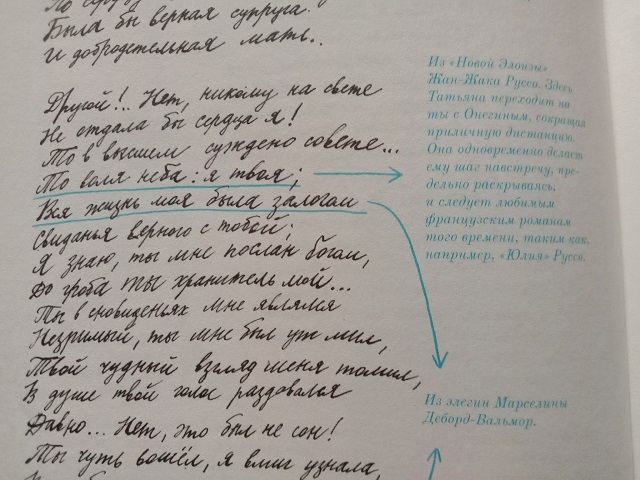 По сердцу
Была бы верная супруга
И добродетельная мать..
Другой!.. Нет, никому на свете
Не отдала бы сердца я!
То в высшем суждено совете...
То воля неба: я твоя;
Вся жизнь моя была залогом
Свиданья верного с тобой;
Я знаю, ты мне послан богом,
До гроба ты хранитель мой...
Ты в сновиденьях мне являлся
Незримый, ты мне был уж мил,
Твой чудный взгляд меня томил,
В душе твой голос раздавался
Давно... Нет, это был не сон!
Ты чуть вошёл, я вмиг узнала,
Из «Новой Элоизы»
Жан-Жака Руссо. Здесь
Татьяна переходит на
ты с Онегиным, сокращая
приличную дистанцию.
Она одновременно делает
ему шаг навстречу, пре-
дельно раскрываясь,
и следует любимым
французским романам
того времени, таким как,
например, «Юлия» Руссо.
Из элегии Марселины
Деборд-Вальмор.